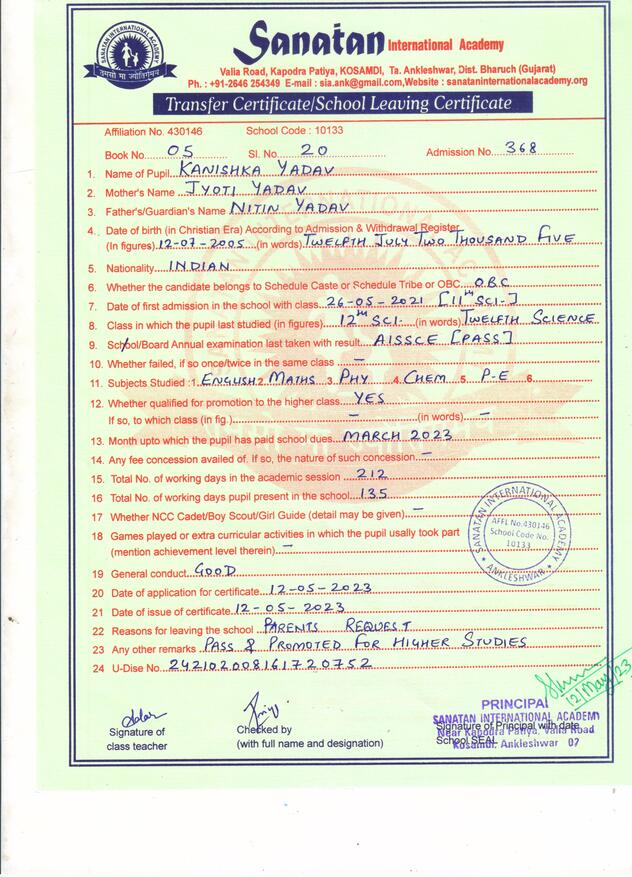 SANATAN INTERNATIONAL ACADEMY
तमसो मा ज्योतिर्गमय
Sanatan International Academy
Valia Road, Kapodra Patiya, KOSAMDI, Ta. Ankleshwar, Dist. Bharuch (Gujarat)
Ph. : +91-2646 254349 E-mail : sia.ank@gmail.com,Website : sanataninternationalacademy.org
Transfer Certificate/School Leaving Certificate
Affiliation No. 430146 School Code : 10133
Book No. 05 Sl. No. 20 Admission No. 368
1. Name of Pupil KANISHKA YADAV
2. Mother's Name JYOTI YADAV
3. Father's/Guardian's Name NITIN YADAV
4. Date of birth (in Christian Era) According to Admission & Withdrawal Register
(In figures) 12-07-2005 (in words) TWELPTH JULY TWO THOUSAND FIVE
5. Nationality INDIAN
6. Whether the candidate belongs to Schedule Caste or Schedule Tribe or OBC OBC
7. Date of first admission in the school with class 26-05-2021 [11th SCI-]
8. Class in which the pupil last studied (in figures) 12th SCI- (in words) TWELFTH SCIENCE
9. School/Board Annual examination last taken with result AISSCE [PASS]
10. Whether failed, if so once/twice in the same class —
11. Subjects Studied :1. ENGLISH 2. MATHS 3. PHY 4. CHEM 5. P-E 6.
12. Whether qualified for promotion to the higher class YES
If so, to which class (in fig.) — (in words) —
13. Month upto which the pupil has paid school dues MARCH 2023
14. Any fee concession availed of. If so, the nature of such concession —
15. Total No. of working days in the academic session 212
16 Total No. of working days pupil present in the school 135
17 Whether NCC Cadet/Boy Scout/Girl Guide (detail may be given) —
18 Games played or extra curricular activities in which the pupil usally took part
(mention achievement level therein) —
19 General conduct GOOD
20 Date of application for certificate 12-05-2023
21 Date of issue of certificate 12-05-2023
22 Reasons for leaving the school PARENTS REQUEST
23 Any other remarks PASS & PROMOTED FOR HIGHER STUDIES
24 U-Dise No. 242102008161720752
SANATAN INTERNATIONAL ACADEMY
AFFL No.430146
School Code No.
10133
ANKLESHWAR
12/May/23
Signature of
class teacher
Checked by
(with full name and designation)
PRINCIPAL
SANATAN INTERNATIONAL ACADEMY
Signature of Principal with date
Near Kapodra Patiya, Valia Road
School SEAL
Kosamdi, Ankleshwar 07